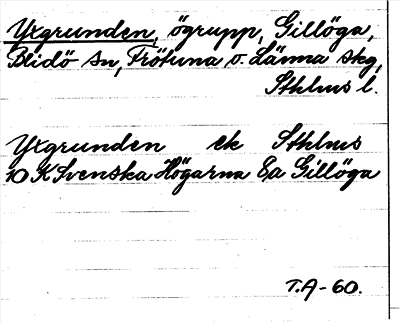 Yxgrunden, ögrupp, Gillöga,
Blidö sn, Frötuna o. Länna skg,
Sthlms l.
Yxgrunden ek Sthlms
10 K Svenska Högarna Ea Gillöga
T.A-60.